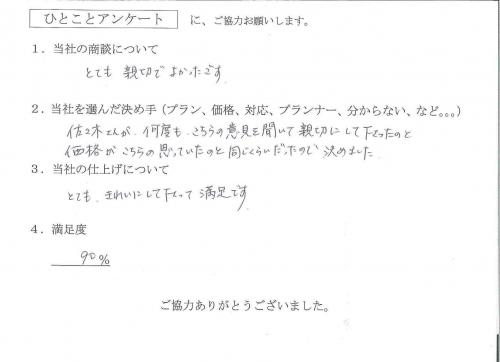 ひとことアンケート に、ご協力お願いします。
1．当社の商談について
とても 親切でよかったです
2．当社を選んだ決め手（プラン、価格、対応、プランナー、分からない、など。。。）
佐々木さんが、何度も、こちらの意見を聞いて親切にして下さったのと
価格がこちらの思っていたのと同じくらいだったので 決めました
3．当社の仕上げについて
とても、きれいにして下さって 満足です
4．満足度
90%
ご協力ありがとうございました。